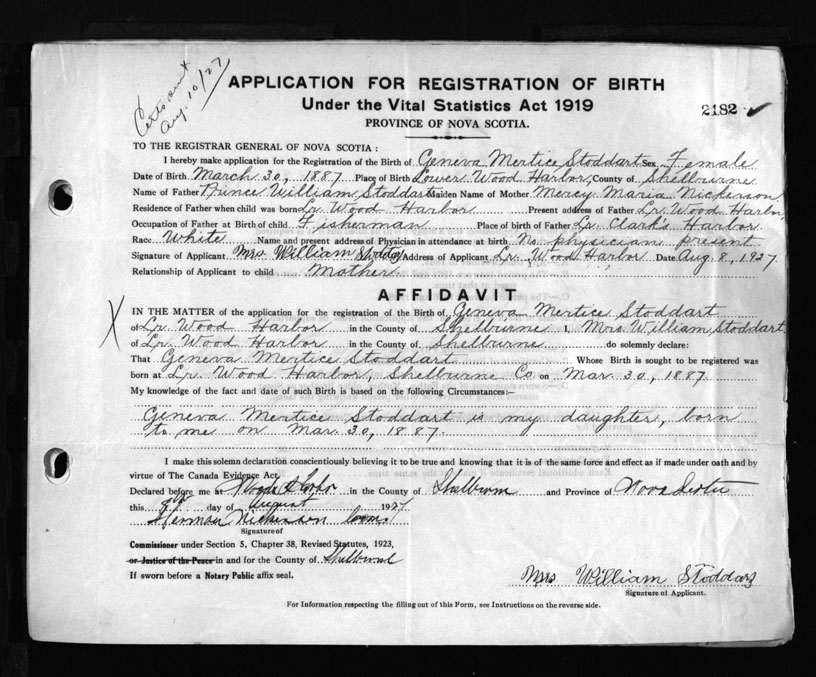 Certs sent
Aug. 10/27
APPLICATION FOR REGISTRATION OF BIRTH
Under the Vital Statistics Act 1919
2182 ✓
PROVINCE OF NOVA SCOTIA.
TO THE REGISTRAR GENERAL OF NOVA SCOTIA :
I hereby make application for the Registration of the Birth of Geneva Mertice Stoddart Sex Female
Date of Birth March 30, 1887. Place of Birth Lower Wood Harbor, County of Shelburne
Name of Father Prince William Stoddart Maiden Name of Mother Mercy Maria Nickerson
Residence of Father when child was born Lr. Wood Harbor Present address of Father Lr. Wood Harbor
Occupation of Father at Birth of child Fisherman Place of birth of Father Lr. Clark's Harbor
Race White Name and present address of Physician in attendance at birth No physician present
Signature of Applicant Mrs William Stoddart Address of Applicant Lr. Wood Harbor Date Aug. 8, 1927
Relationship of Applicant to child Mother
AFFIDAVIT
X
IN THE MATTER of the application for the registration of the Birth of Geneva Mertice Stoddart
of Lr. Wood Harbor in the County of Shelburne I, Mrs William Stoddart
of Lr. Wood Harbor in the County of Shelburne do solemnly declare:
That Geneva Mertice Stoddart Whose Birth is sought to be registered was
born at Lr. Wood Harbor, Shelburne Co. on Mar. 30, 1887.
My knowledge of the fact and date of such Birth is based on the following Circumstances:—
Geneva Mertice Stoddart is my daughter, born
to me on Mar. 30, 1887.
I make this solemn declaration conscientiously believing it to be true and knowing that it is of the same force and effect as if made under oath and by
virtue of The Canada Evidence Act.
Declared before me at Woods Harbor in the County of Shelburne and Province of Nova Scotia
this 8th day of August 1927
Herman Nickerson Com.
Signature of
Commissioner under Section 5, Chapter 38, Revised Statutes, 1923,
or Justice of the Peace in and for the County of Shelburne
If sworn before a Notary Public affix seal.
Mrs William Stoddart
Signature of Applicant.
For Information respecting the filling out of this Form, see Instructions on the reverse side.